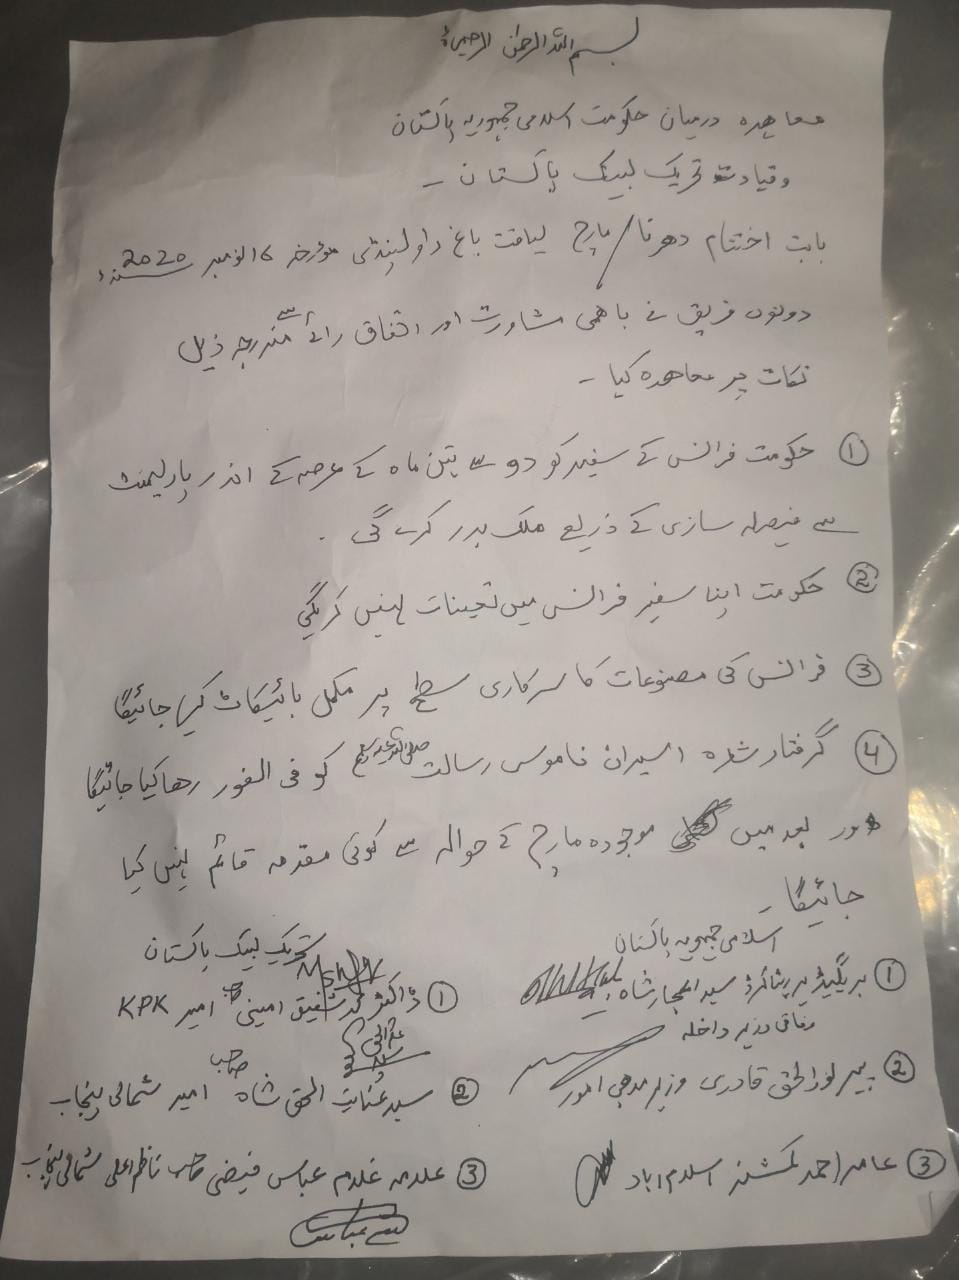 بسم اللہ الرحمٰن الرحیم
معاہدہ درمیان حکومت اسلامی جمہوریہ پاکستان
و قیادت تحریک لبیک پاکستان ۔
بابت اختتام دھرنا/مارچ لیاقت باغ راولپنڈی مؤرخہ 16 نومبر 2020 سنہء
دونوں فریق نے باھمی مشاورت اور اتفاق رائے سے مندرجہ ذیل
نکات پر معاھدہ کیا ۔
① حکومت فرانس کے سفیر کو دو سے تین ماہ کے عرصہ کے اندر پارلیمنٹ
سے فیصلہ سازی کے ذریعے ملک بدر کرے گی ۔
② حکومت اپنا سفیر فرانس میں تعینات نہیں کریگی
③ فرانس کی مصنوعات کا سرکاری سطح پر مکمل بائیکاٹ کیا جائیگا
④ گرفتار شدہ اسیران ناموس رسالت صلی اللہ علیہ وسلم کو فی الفور رھا کیا جائیگا
اور بعد میں موجودہ مارچ کے حوالہ سے کوئی مقدمہ قائم نہیں کیا
جائیگا ۔
اسلامی جمہوریہ پاکستان
① بریگیڈیر ریٹائرڈ سید اعجاز شاہ
وفاقی وزیر داخلہ
② پیر نورالحق قادری وزیر مذھبی امور
③ عامر احمد کمشنر اسلام اباد
تحریک لبیک پاکستان
① ڈاکٹر محمد شفیق امینی صاحب امیر KPK
② سید عنایت الحق شاہ صاحب امیر شمالی پنجاب
③ علامہ غلام عباس فیضی صاحب ناظم اعلی شمالی پنجاب